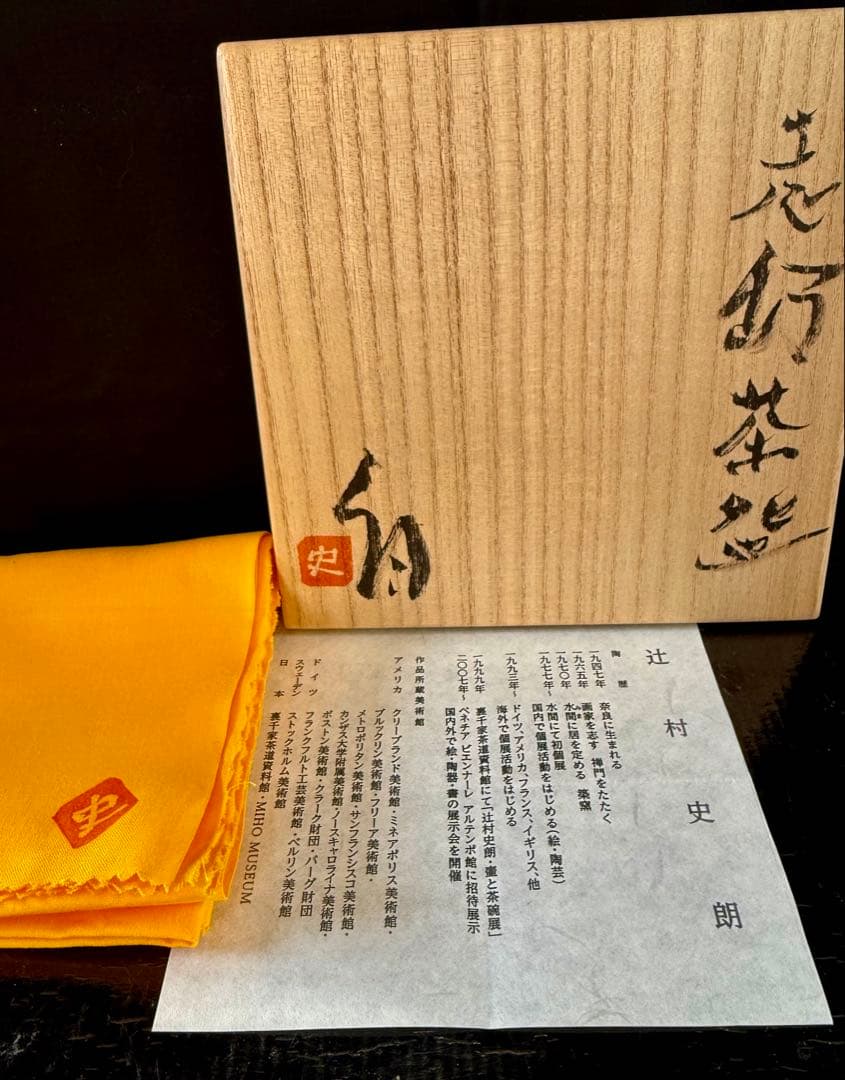 志野茶盌
史
史
辻村史朗
陶歴
一九四七年 奈良に生まれる
一九六五年 画家を志す 禅門をたたく
一九七〇年 水間に居を定める 築窯
一九七七年~ 水間にて初個展
国内で個展活動をはじめる(絵・陶芸)
一九九三年~ ドイツ、アメリカ、フランス、イギリス、他
海外で個展活動をはじめる
一九九九年 裏千家茶道資料館にて「辻村史朗・壷と茶碗展」
二〇〇七年~ ベネチア ビエンナーレ アルテンポ館に招待展示
国内外で絵・陶器・書の展示会を開催
作品所蔵美術館
アメリカ クリーブランド美術館・ミネアポリス美術館・
ブルックリン美術館・フリーア美術館・
メトロポリタン美術館・サンフランシスコ美術館・
カンザス大学附属美術館・ノースキャロライナ美術館・
ボストン美術館・クラーク財団・バーグ財団
ドイツ フランクフルト工芸美術館・ベルリン美術館
スウェーデン ストックホルム美術館
日本 裏千家茶道資料館・MIHO MUSEUM